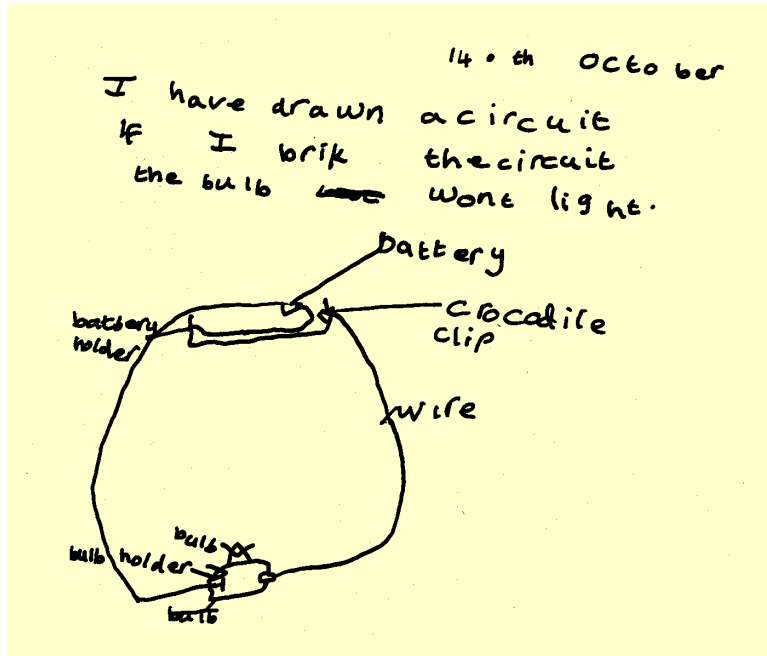 14.th October
I have drawn a circuit
If I brik the circuit
the bulb wont light.
battery
battery
holder
crocadile
clip
wire
bulb
bulb holder
bulb